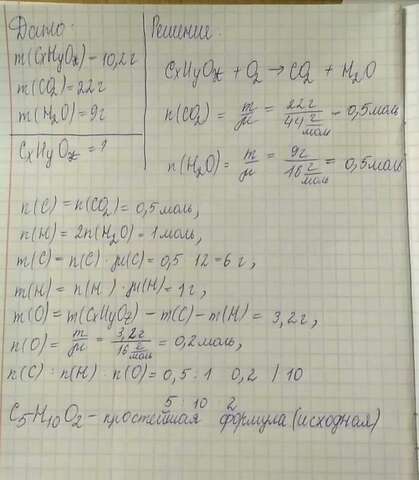 Дано:
m(CxHyOz) = 10,2г
m(CO₂) = 22г
m(H₂O) = 9г
CxHyOz = ?
Решение:
CxHyOz + O₂ → CO₂ + H₂O
n(CO₂) = m/μ = 22г/44 г/моль = 0,5моль
n(H₂O) = m/μ = 9г/18 г/моль = 0,5моль
n(C) = n(CO₂) = 0,5моль,
n(H) = 2n(H₂O) = 1моль,
m(C) = n(C) · μ(C) = 0,5 · 12 = 6г,
m(H) = n(H) · μ(H) = 1г,
m(O) = m(CxHyOz) − m(C) − m(H) = 3,2г,
n(O) = m/μ = 3,2г/16 г/моль = 0,2моль,
n(C) : n(H) : n(O) = 0,5 : 1 0,2 / 10
5 : 10 : 2
C₅H₁₀O₂ – простейшая формула (исходная)